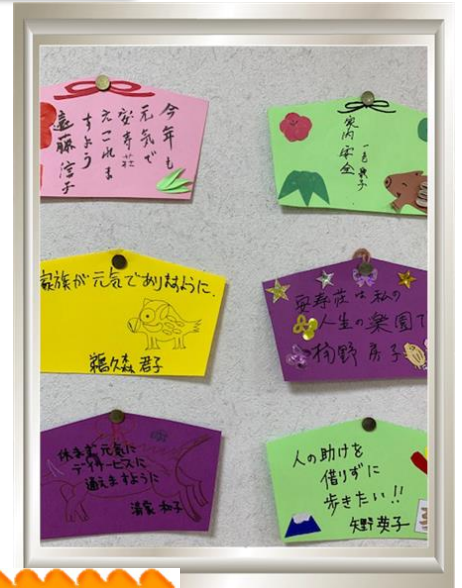 今年も
元気で
安寿荘
えこれま
すよう
遠藤 淳子
家内安全
家族が元気でありますように。
鵜久森 君子
安寿荘は私の
人生の楽園で
房子
休まず元気に
デイサービスに
通えますように
清家 和子
人の助けを
借りずに
歩きたい!!
矢野英子